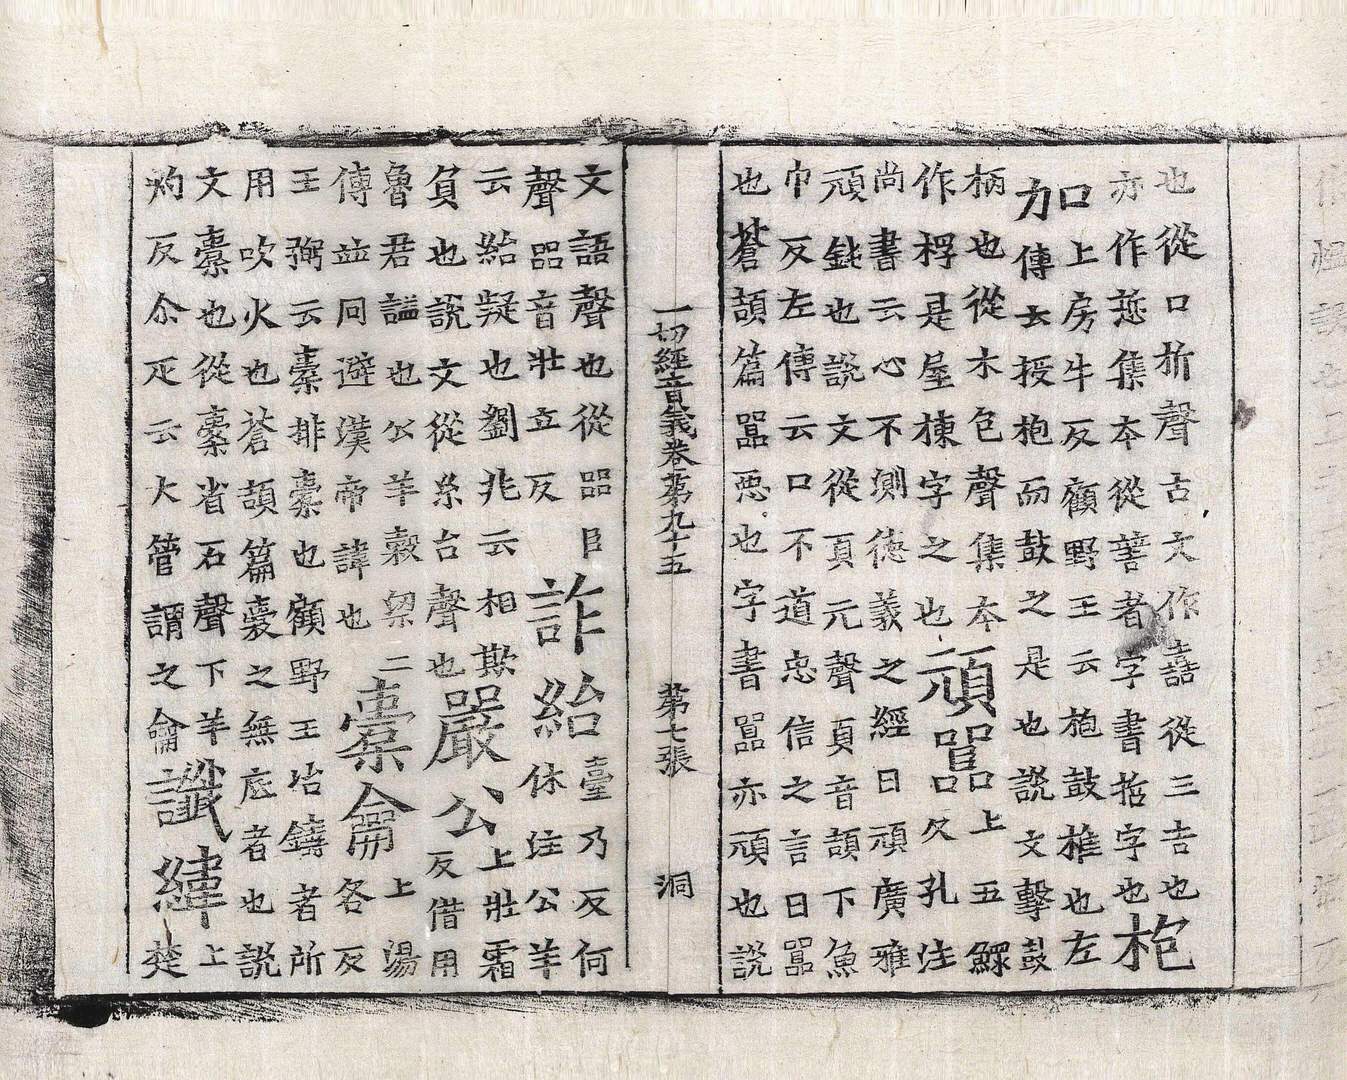 也從口折聲古文作嚞從三吉也
亦作悊集本從誓者字書哲字也枹
口上房牛反顧野王云枹鼓椎也左
力傳云授枹而鼓之是也說文擊鼓
柄也從木包聲集本
作桴是屋棟字之也頑嚚上五鰥
反孔注
尚書云心不測德義之經曰頑廣雅
頑鈍也說文從頁元聲頁音頡下魚
巾反左傳云口不道忠信之言曰嚚
也蒼頡篇嚚惡也字書嚚亦頑也說
一切經音義卷第九十五 第七張 洞
文語聲也從㗊臣
聲㗊音壯立反詐紿臺乃反何
休注公羊
云紿疑也劉兆云相欺
負也說文從糸台聲也嚴公上壯霜
反借用
魯君謚也公羊穀梁二
傳並同避漢帝諱也橐籥上湯
各反
王弼云橐排橐也顧野王冶鑄者所
用吹火也蒼頡篇橐之無底者也說
文橐也從橐省石聲下羊
灼反尒疋云大管謂之籥讖緯上
楚